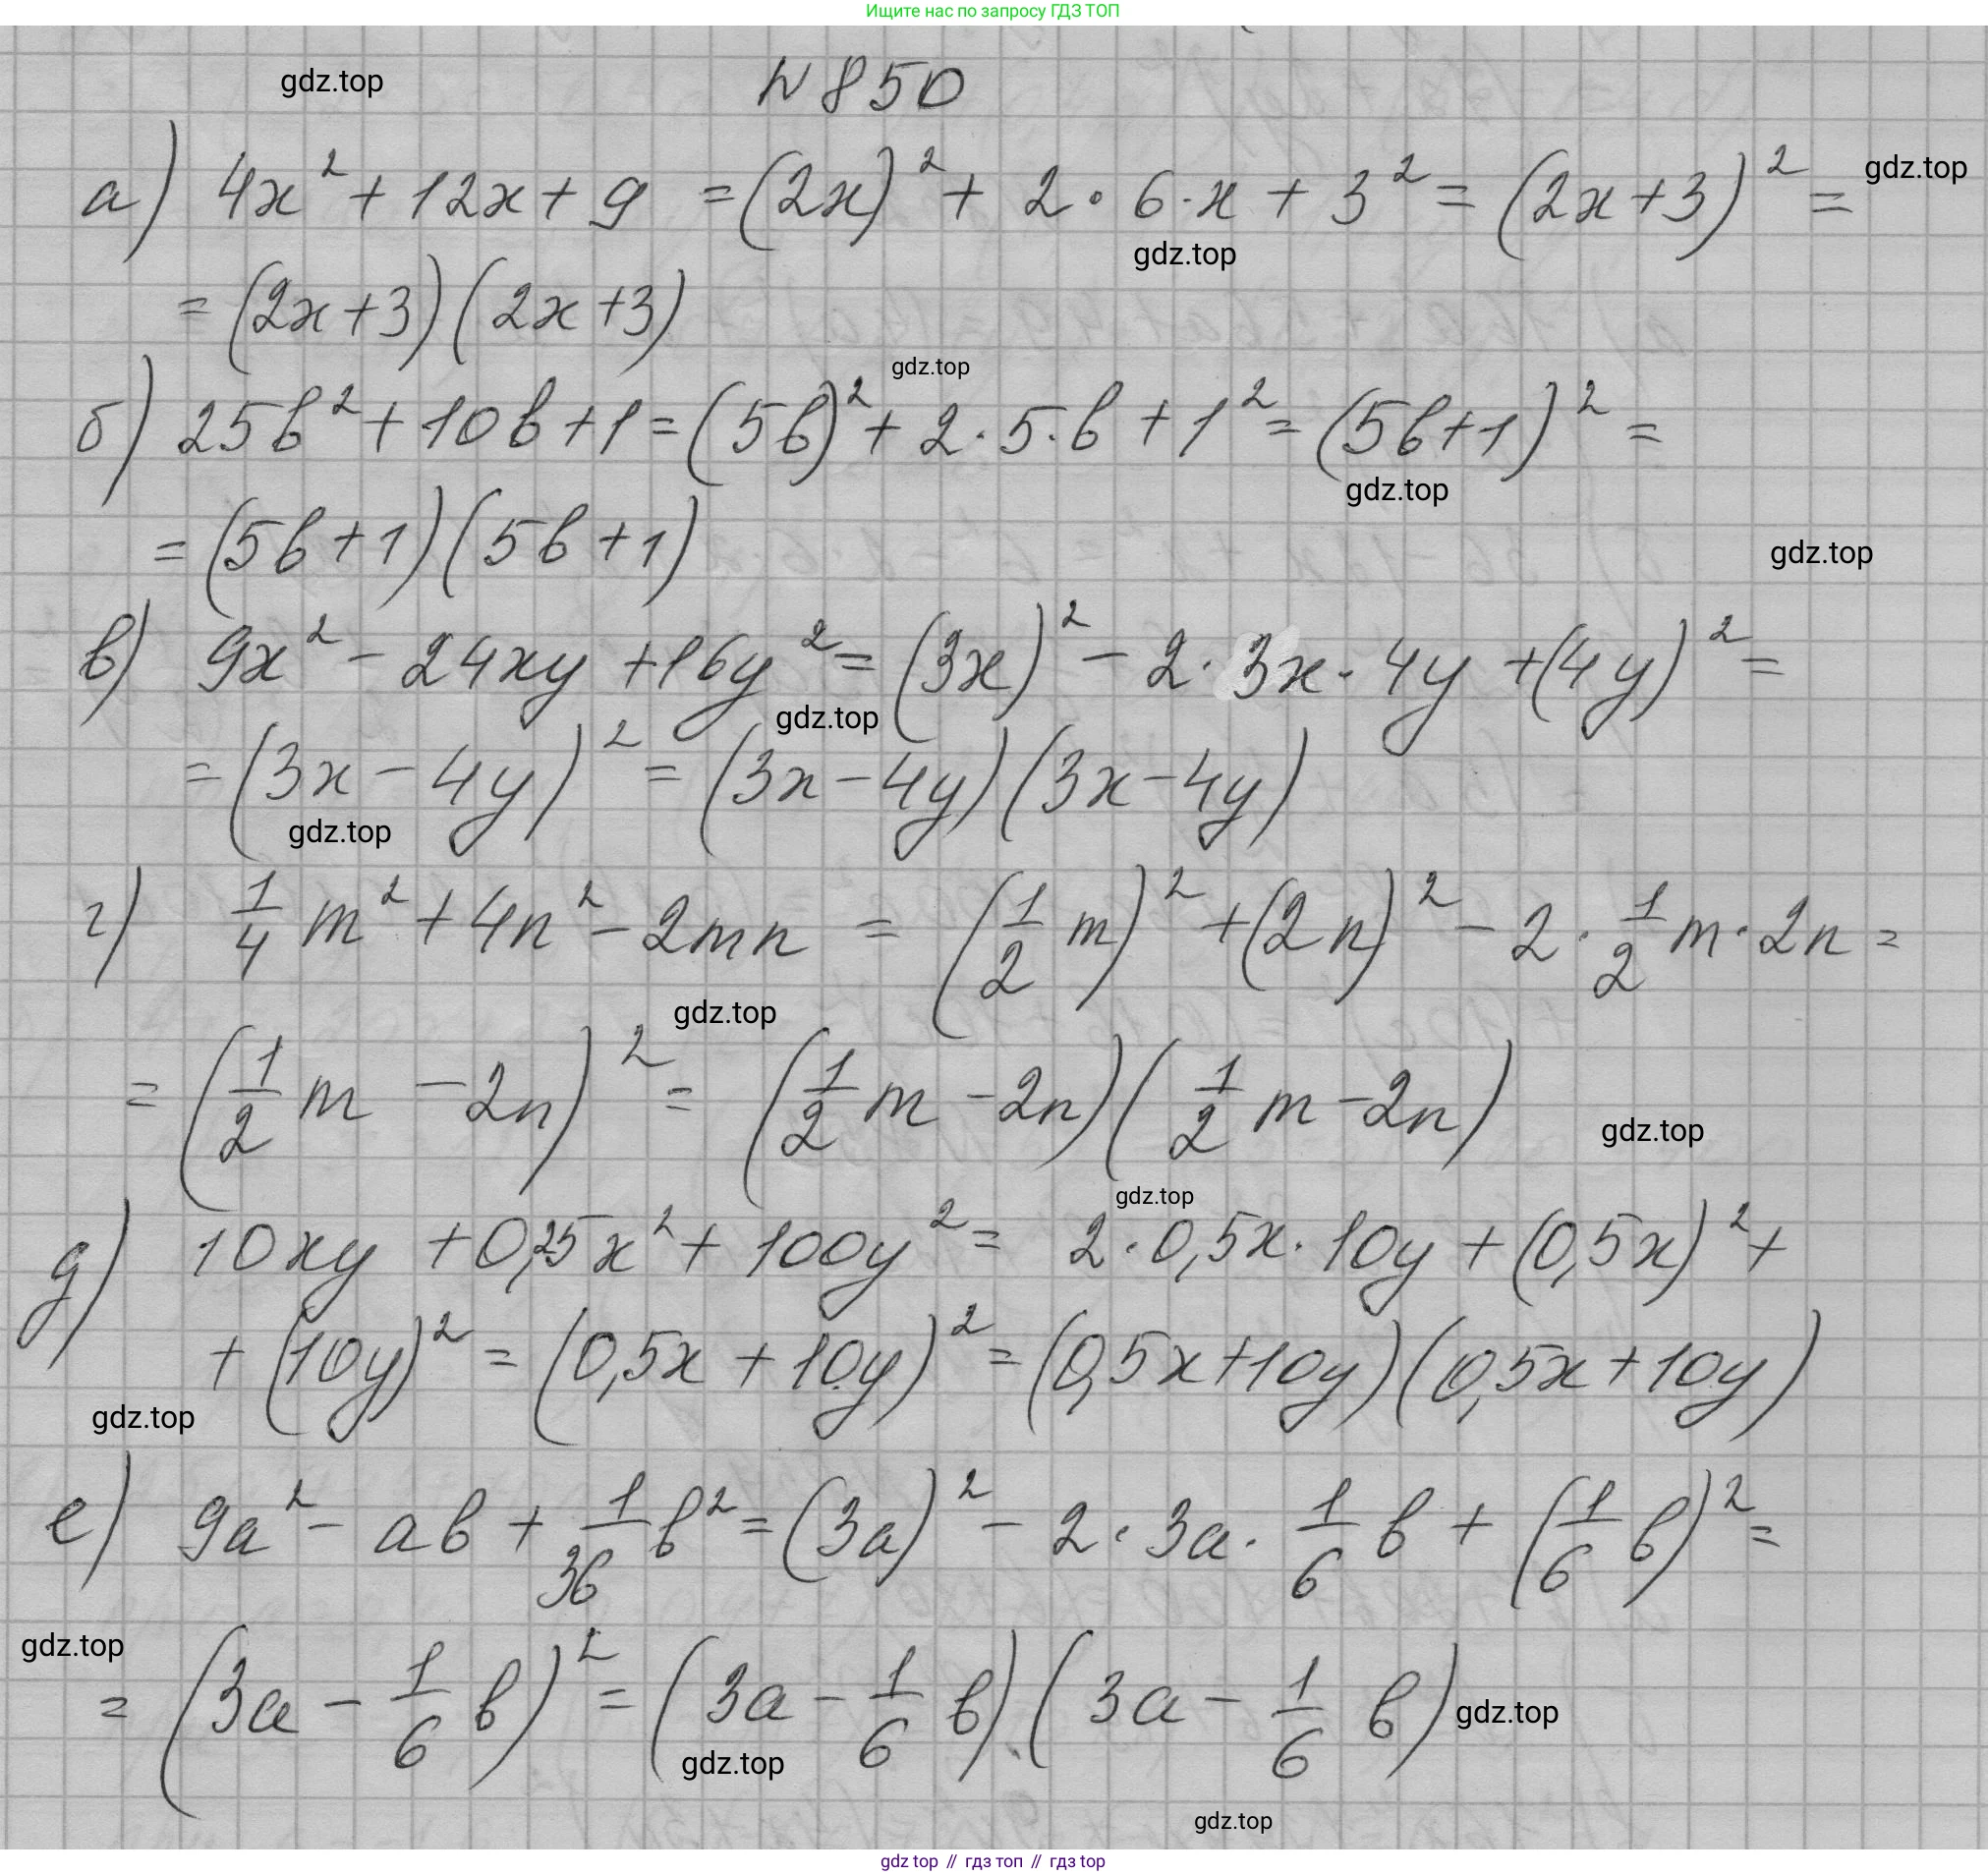 Ищите нас по запросу ГДЗ ТОП
gdz.top
N 850
а) 4x² + 12x + 9 = (2x)² + 2 · 6 · x + 3² = (2x + 3)² =
gdz.top
gdz.top
= (2x + 3)(2x + 3)
gdz.top
б) 25b² + 10b + 1 = (5b)² + 2 · 5 · b + 1² = (5b + 1)² =
gdz.top
= (5b + 1)(5b + 1)
gdz.top
в) 9x² - 24xy + 16y² = (3x)² - 2 · 3x · 4y + (4y)² =
gdz.top
= (3x - 4y)² = (3x - 4y)(3x - 4y)
gdz.top
г) 1/4 m² + 4n² - 2mn = (1/2 m)² + (2n)² - 2 · 1/2 m · 2n =
gdz.top
= (1/2 m - 2n)² = (1/2 m - 2n)(1/2 m - 2n)
gdz.top
gdz.top
д) 10xy + 0,25x² + 100y² = 2 · 0,5x · 10y + (0,5x)² +
+ (10y)² = (0,5x + 10y)² = (0,5x + 10y)(0,5x + 10y)
gdz.top
е) 9a² - ab + 1/36 b² = (3a)² - 2 · 3a · 1/6 b + (1/6 b)² =
gdz.top
= (3a - 1/6 b)² = (3a - 1/6 b) · (3a - 1/6 b)
gdz.top
gdz.top
gdz.top
gdz top // гдз топ // гдз top